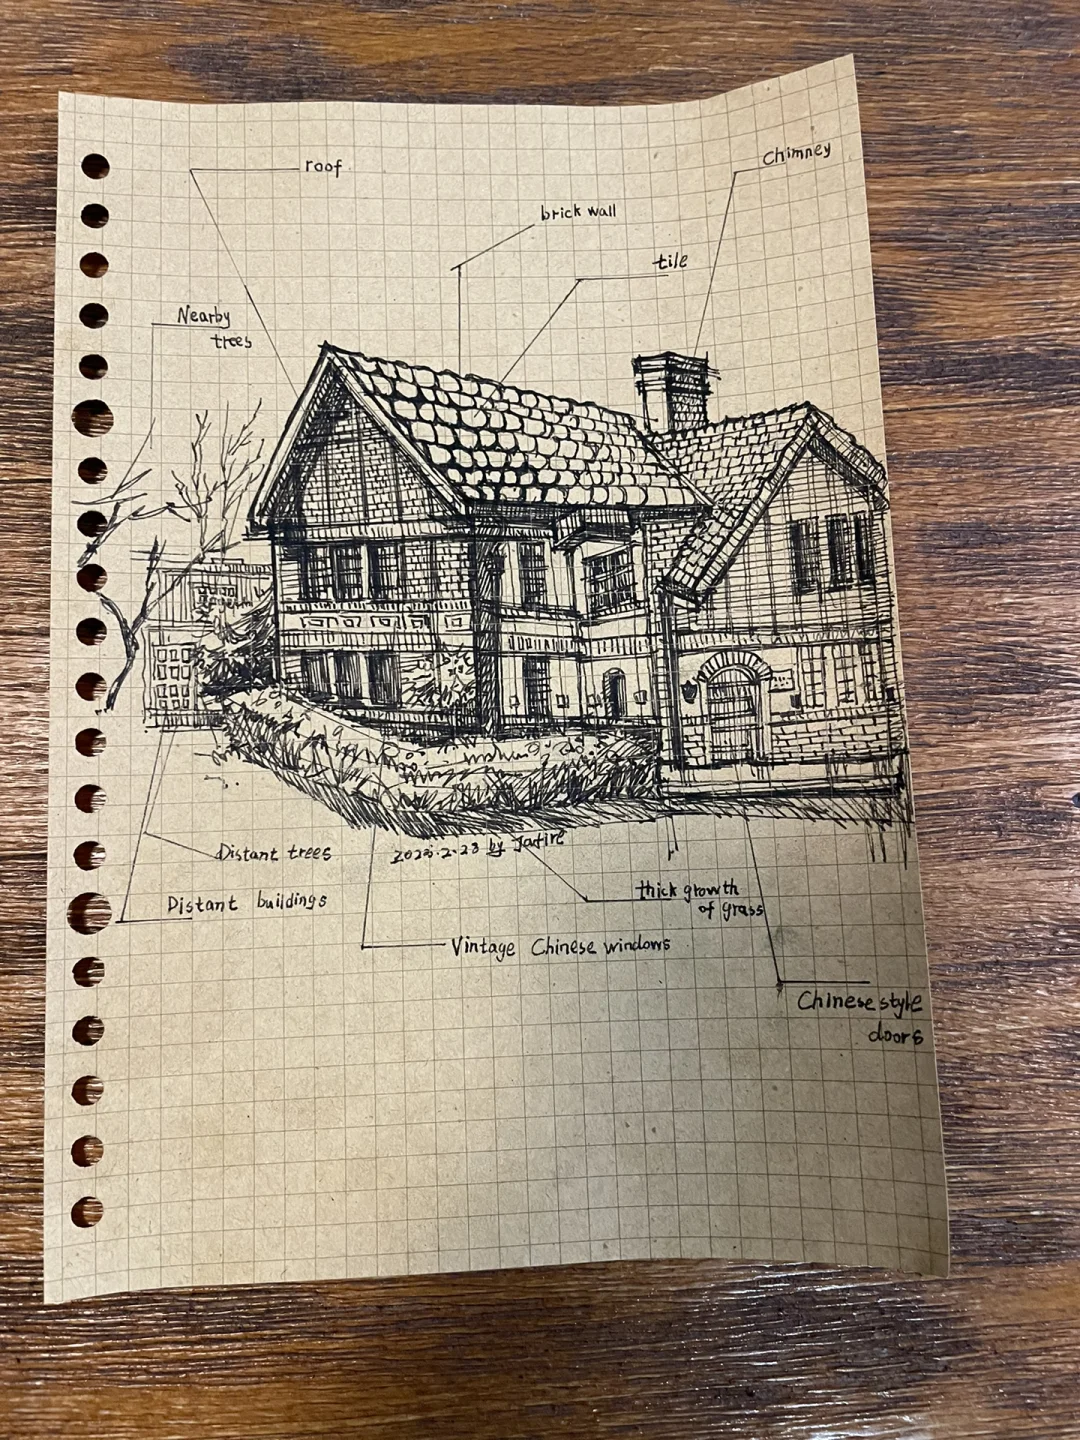 roof
Chimney
brick wall
tile
Nearby
trees
Distant trees
by
thick growth
of grass
Distant buildings
Vintage Chinese windows
Chinese style
doors